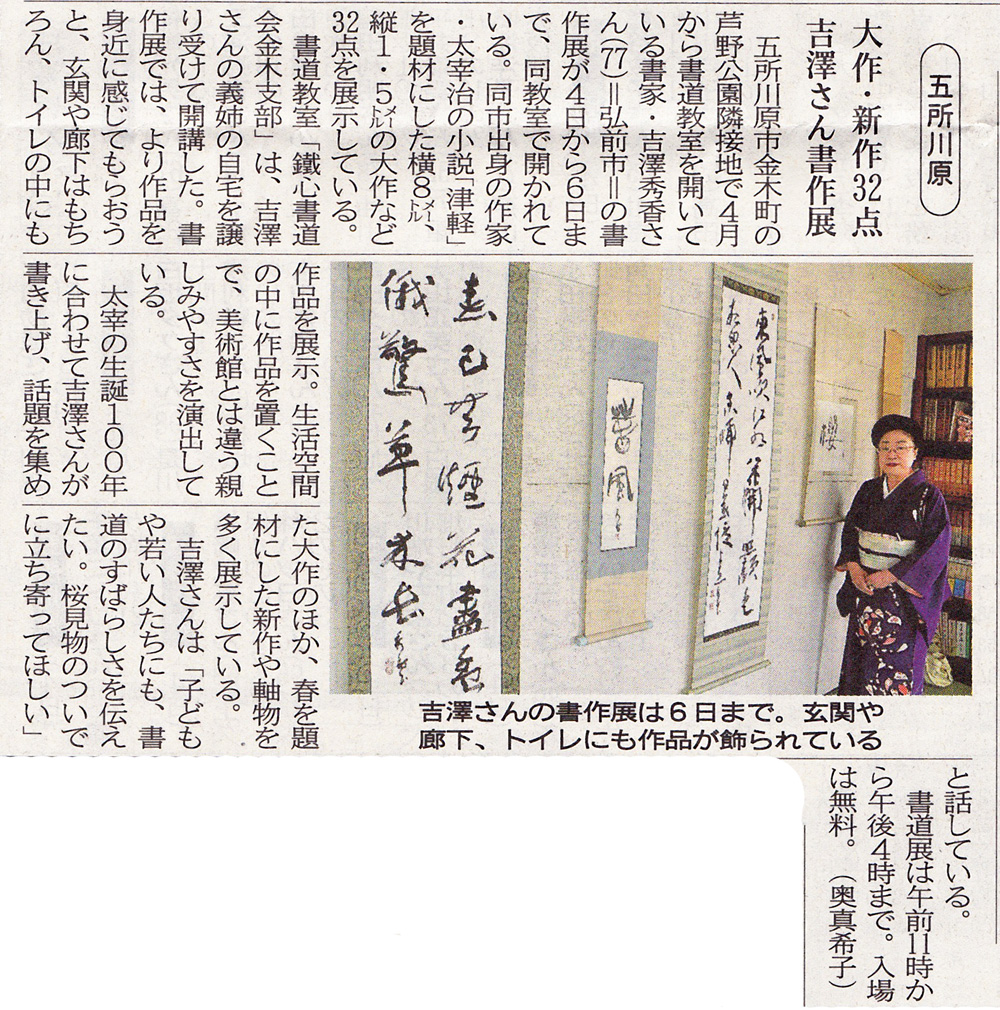 五所川原
大作・新作32点
吉澤さん書作展
五所川原市金木町の
芦野公園隣接地で4月
から書道教室を開いて
いる書家・吉澤秀香さ
ん(77)＝弘前市＝の書
作展が4日から6日ま
で、同教室で開かれて
いる。同市出身の作家
・太宰治の小説「津軽」
を題材にした横8㍍、
縦1・5㍍の大作など
32点を展示している。
書道教室「鐵心書道
会金木支部」は、吉澤
さんの義姉の自宅を譲
り受けて開講した。書
作展では、より作品を
身近に感じてもらおう
と、玄関や廊下はもち
ろん、トイレの中にも
作品を展示。生活空間
の中に作品を置くこと
で、美術館とは違う親
しみやすさを演出して
いる。
太宰の生誕100年
に合わせて吉澤さんが
書き上げ、話題を集め
た大作のほか、春を題
材にした新作や軸物を
多く展示している。
吉澤さんは「子ども
や若い人たちにも、書
道のすばらしさを伝え
たい。桜見物のついで
に立ち寄ってほしい」
と話している。
書道展は午前11時か
ら午後4時まで。入場
は無料。（奥真希子）
櫻
春風
俄驚草木長
吉澤さんの書作展は6日まで。玄関や
廊下、トイレにも作品が飾られている